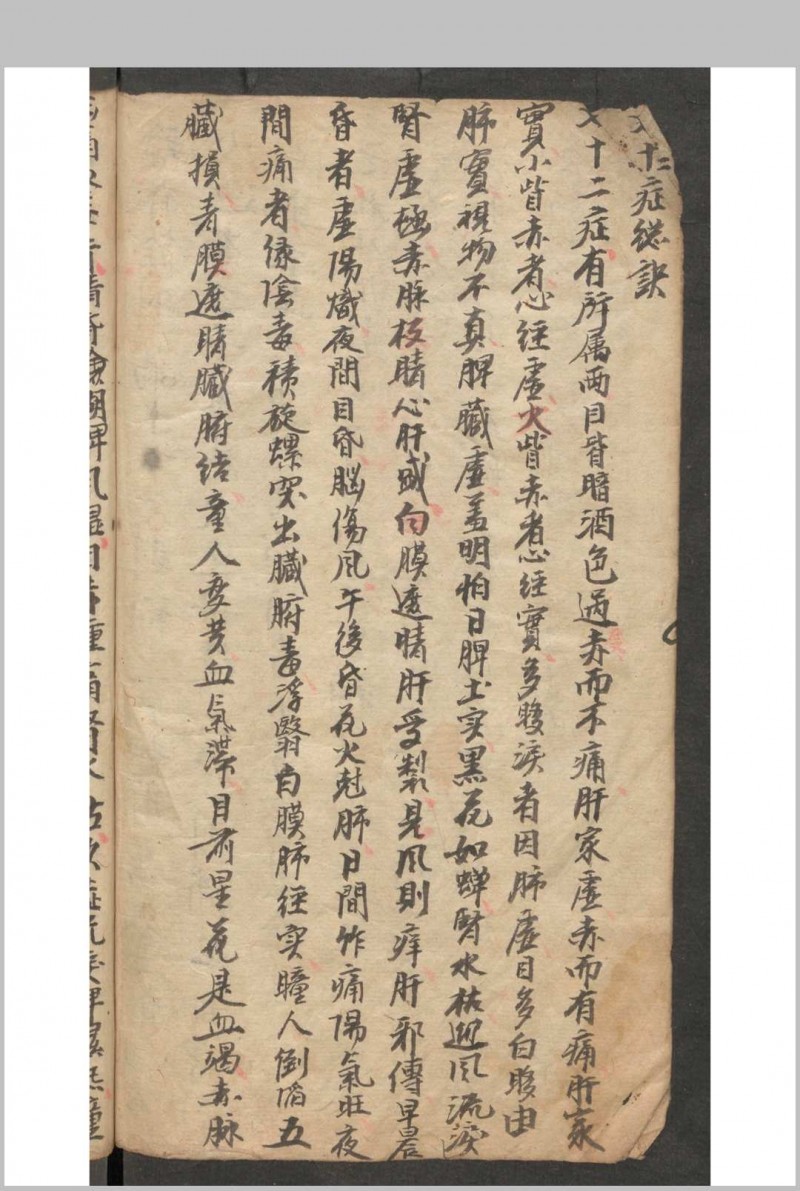 十二症総訣
十二症有所属两目昏暗酒色過赤而不痛肝家虚赤而有痛肝家
實小眥赤者心経虚火眥赤者心経實多眵淚者因肺虚目多白眵由
肺實視物不真脾臟虚羞明怕日脾土实黑花如蝉腎水枯迎風流淚
腎虚極赤脉扳睛心肝盛白膜遮睛肝受製見風則痒肝邪傳早晨
昏者虚陽熾夜間目昏脳傷風午後昏花火尅肺日間作痛陽氣旺夜
間痛者縁陰毒積旋螺突出臟腑毒浮翳白膜肺経实瞳人倒陷五
臟損青膜遮睛臟腑結童人变黄血氣滞目前星花是血竭赤脉